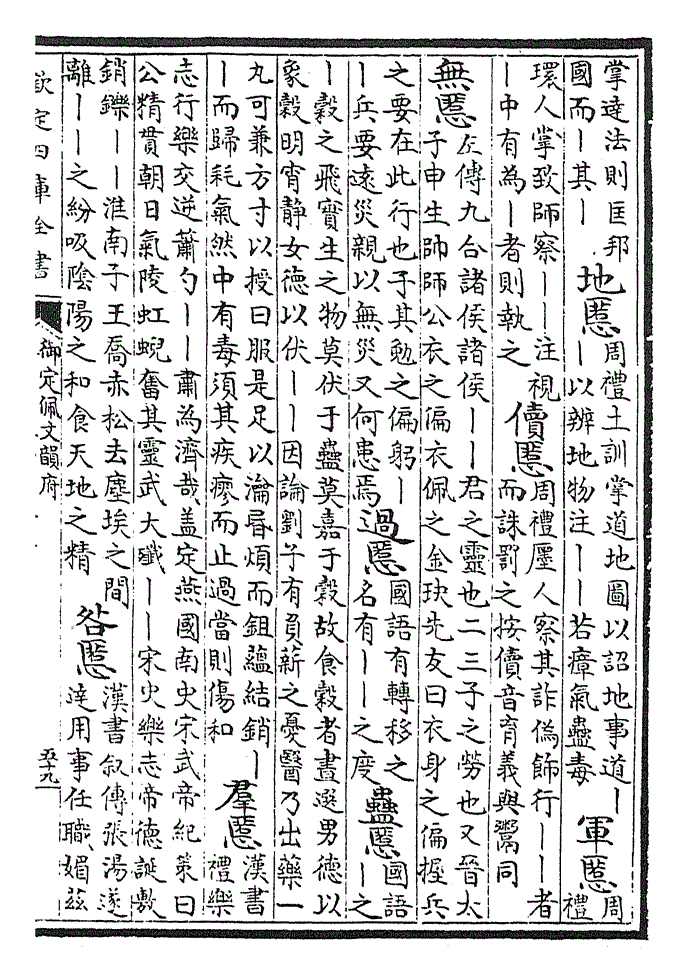 掌達法則匡邦
國而丨其丨
地慝
周禮土訓掌道地圖以詔地事道丨
丨以辨地物注丨丨若瘴氣蠱毒
軍慝
周
禮
環人掌致師察丨丨注視
丨中有為丨者則執之
儥慝
周禮廛人察其詐偽飾行丨丨者
而誅罰之按儥音育義與鬻同
無慝
左傳九合諸侯諸侯丨丨君之靈也二三子之勞也又晉太
子申生帥師公衣之偏衣佩之金玦先友曰衣身之偏握兵
之要在此行也子其勉之偏躬丨
丨兵要遠災親以無災又何患焉
過慝
國語有轉移之
名有丨丨之度
蠱慝
國語
丨之
丨穀之飛實生之物莫伏于蠱莫嘉于穀故食穀者晝選男德以
象穀明宵静女德以伏丨丨因論劉子有負薪之憂醫乃出藥一
丸可兼方寸以授曰服是足以瀹昬煩而鉏蘊結銷丨
丨而歸耗氣然中有毒須其疾瘳而止過當則傷和
羣慝
漢書
禮樂
志行樂交逆簫勺丨丨肅為濟哉盖定燕國南史宋武帝紀策曰
公精貫朝日氣陵虹蜺奮其靈武大殲丨丨宋史樂志帝德誕敷
銷鑠丨丨淮南子王喬赤松去塵埃之間
離丨丨之紛吸陰陽之和食天地之精
咎慝
漢書叙傳張湯遂
達用事任職媚兹
欽定四庫全書
御定佩文韻府
五十九